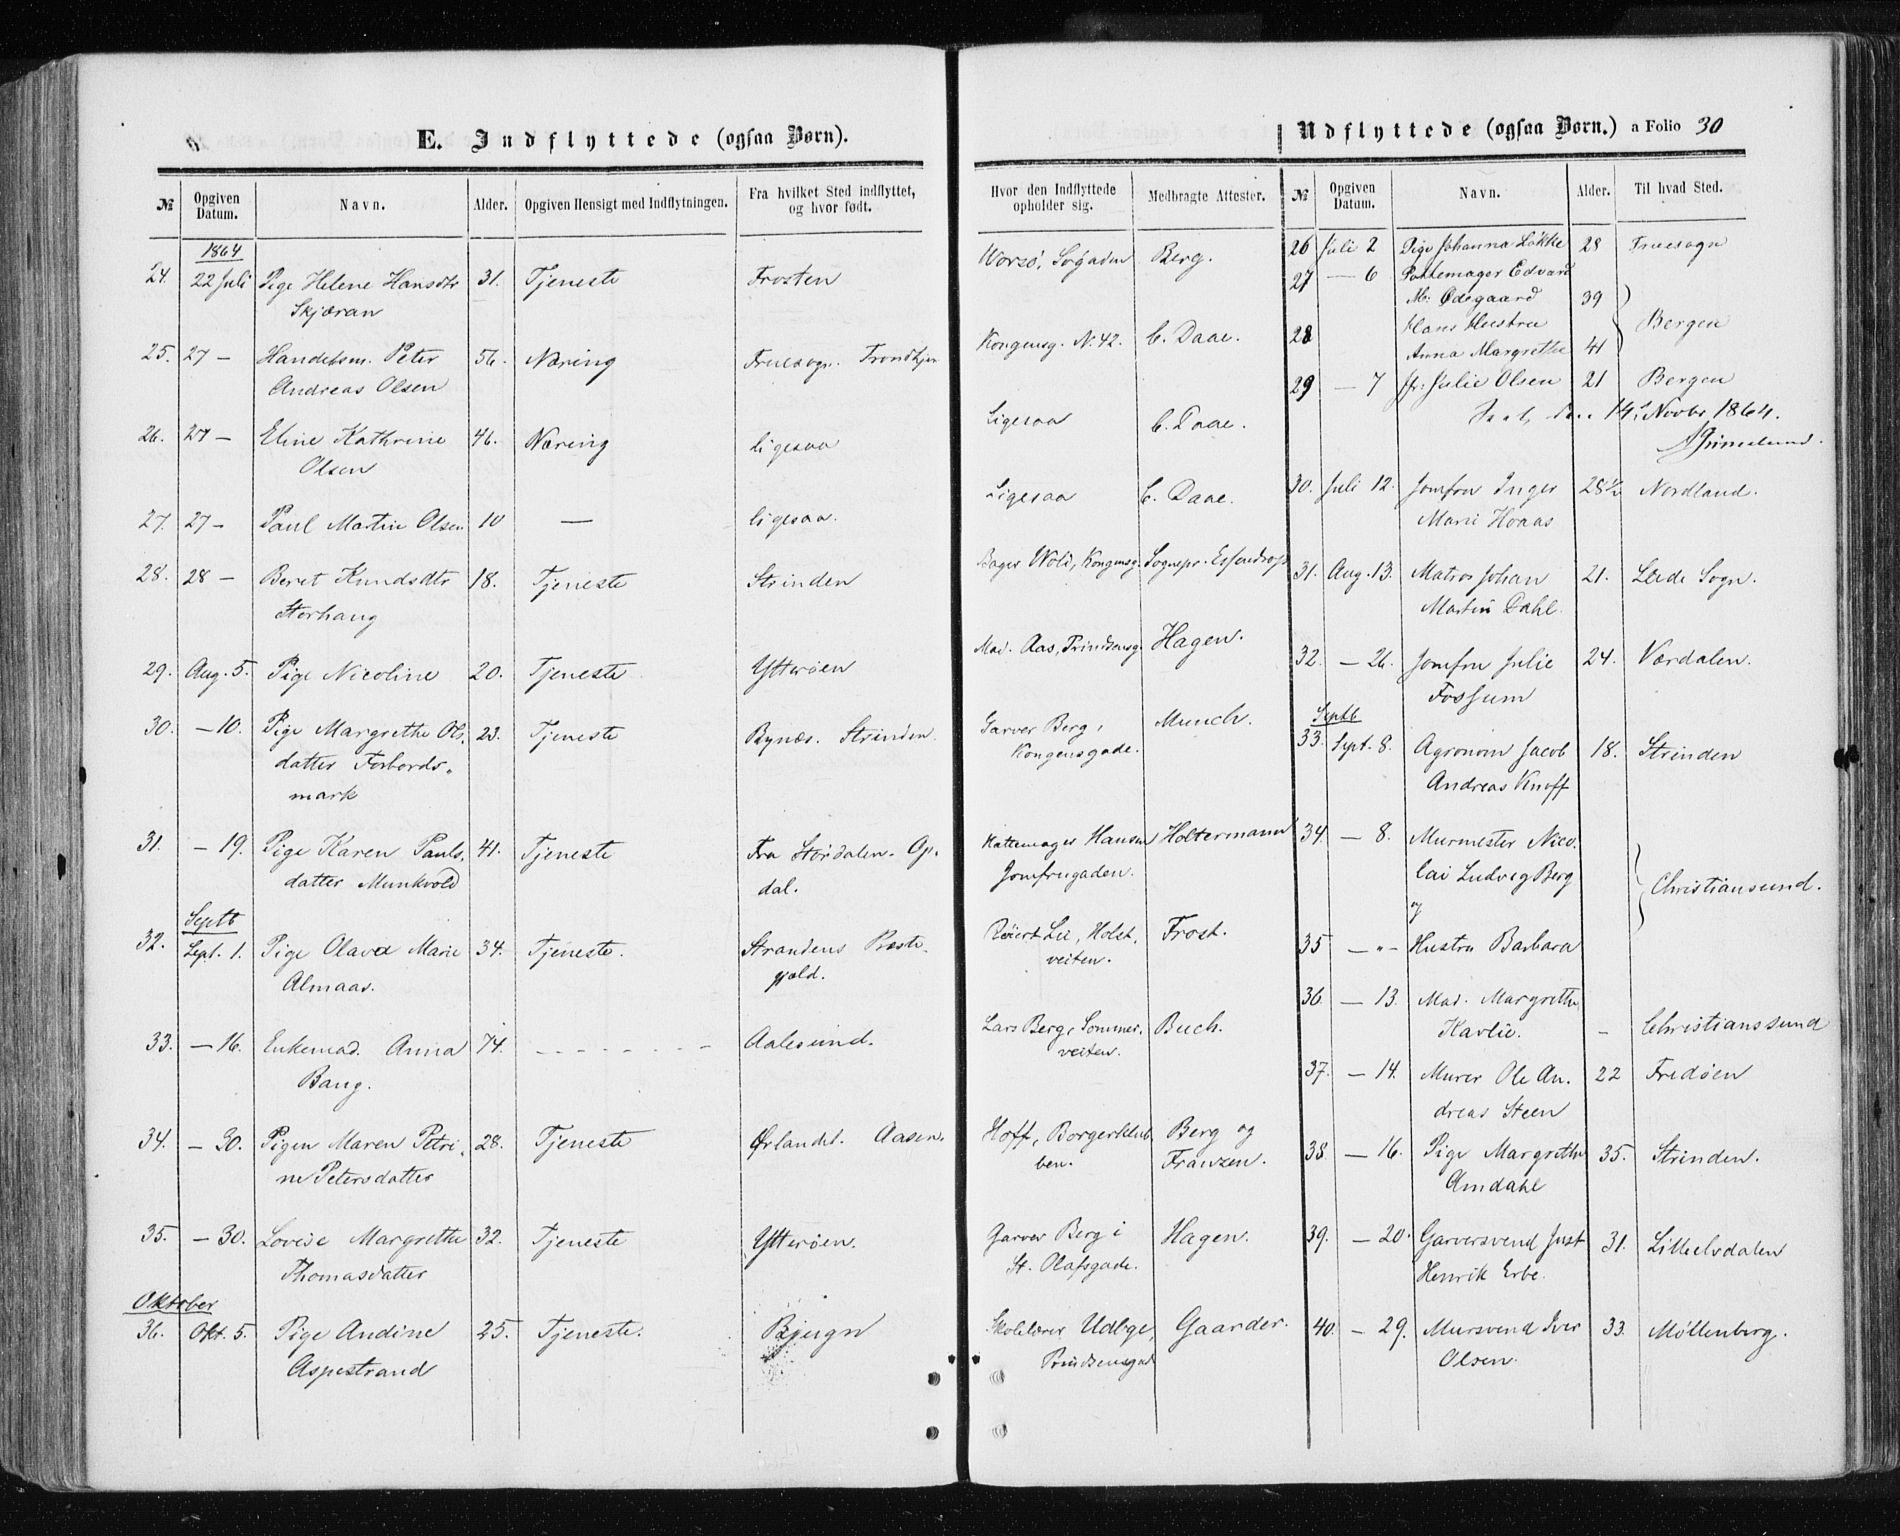 E. Indflyttede (ogsaa Børn).
№ Opgiven Datum. Navn. Alder. Opgiven Hensigt med Indflytningen. Fra hvilket Sted indflyttet, og hvor født. Hvor den Indflyttede opholder sig. Medbragte Attester.
1864
24. 22 Juli Pige Helene Hansdtr 31. Tjeneste Frosten Worsö, Berg.
Skjæran
25. 27 – Handelsm. Peter 56. Næring Fruesogn. Trondhjem Kongensg. N. 42. C. Daae.
Andreas Olsen
26. 27 – Eline Kathrine 46. Næring Ligesaa Ligesaa C. Daae.
Olsen
27. 27 – Paul Martin Olsen 10 — Ligesaa. Ligesaa C. Daae.
28. 28 – Beret Knudsdtr 18. Tjeneste Strinden Bager Wold, Kongensg. Sognepr. Essendrop
Storhaug
29. Aug. 5. Pige Nicoline 20. Tjeneste Ytterøen Mad. Aas, Prindsensg. Hagen.
30. – 10. Pige Margrethe Ols. 23. Tjeneste Bynæs. Strinden. Garver Berg, Munch.
datter Forbords- Kongensgade.
mark
31. – 19. Pige Karen Pauls. 41. Tjeneste Fra Stördalen. Op. Hattemager Hansen Holtermann
datter Munkvold dal. Jomfrugaden.
Septb
32. Sept. 1. Pige Olava Marie 34. Tjeneste. Strandens Præste- Lie, Holst. Frost.
Almaas. gjæld. veiten.
33. – 16. Enkemad. Anna 74. - - - - - - - Aalesund. Lars Berg, Sommer. Buch.
Bang. veiten.
34. – 30. Pigen Maren Petri. 28. Tjeneste Ørlandet. Aasen. Hoff, Borgerklub Berg og
ne Petersdatter ben. Franzen.
35. – 30. Lovise Margrethe 32. Tjeneste Ytterøen. Garver Berg i Hagen.
Thomasdatter St. Olafsgade.
Oktober
36. Okt. 5. Pige Andine 25. Tjeneste. Bjugn Skolelærer Udbye, Gaarder.
Aspestrand Prindsensgad
Udflyttede (ogsaa Børn.) a Folio 30
№ Opgiven Datum. Navn. Alder. Til hvad Sted.
26 Juli 2 Pige Johanna Løkke 28 Fruesogn
27 — 6 Pottemager Edvard
M: Ødegaard 39
28 Hans Hustru Bergen
Anna Margrethe 41
29 — 7 Jfr: Julie Olsen 21 Bergen
14. Novbr 1864.
30. Juli 12. Jomfru Inger 28½ Nordland.
Marie Hoaas
31. Aug. 13. Matros Johan 21. Lade Sogn.
Martin Dahl.
32. – 26. Jomfru Julie 24. Værdalen.
Fossum
Septb
33. Sept. 8. Agronom Jacob 18. Strinden
Andreas Knoff
34. — 8. Murmester Nico.
lai Ludvig Berg Christiansund.
og
35 – "– Hustru Barbara
36. — 13. Mad. Margrethe
Kavlie. – Christianssund
37. — 14. Murer Ole An. 22 Fredøen
dreas Steen
38. — 16. Pige Margrethe 35. Strinden.
Amdahl
39. — 20. Garversvend Just 31. Lilleelvdalen
Henrik Erbe.
40. – 29. Mursvend Iver 33. Møllenberg.
Olsen.